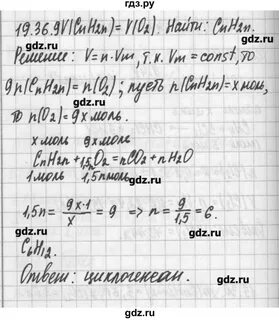 гдз.ру
19.36. 9V(CnH2n) = V(O2). Найти: CnH2n.
Решение: V = n·Vm, т.к. Vm = const, то
9n(CnH2n) = n(O2); пусть n(CnH2n) = x моль,
то n(O2) = 9x моль.
x моль 9x моль
CnH2n + 1,5nO2 = nCO2 + nH2O
1 моль 1,5n моль
1,5n = 9x·1/x = 9 ⇒ n = 9/1,5 = 6.
C6H12.
Ответ: циклогексан.